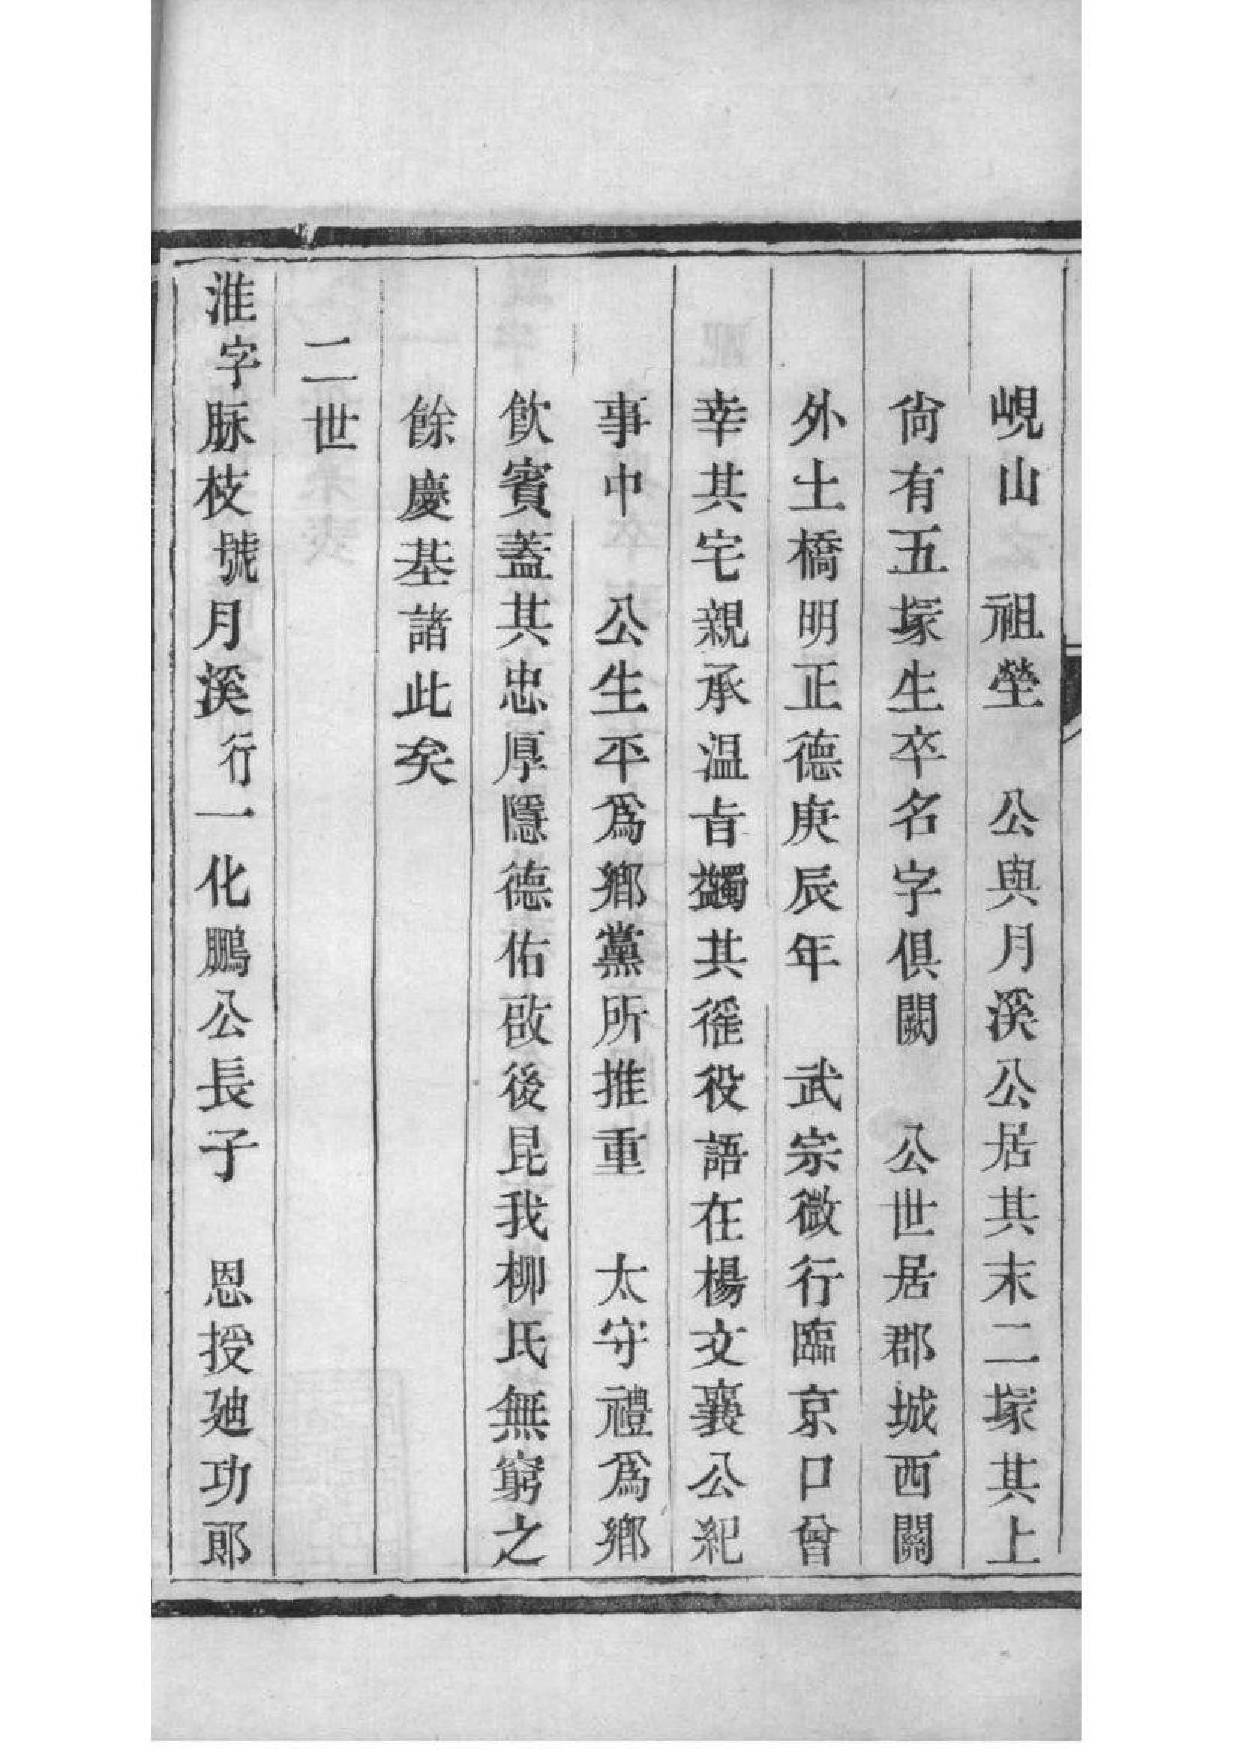 峴山　祖塋　公與月溪公居其末二塚其上
尙有五塚生卒名字俱闕　公世居郡城西關
外土橋明正德庚辰年　武宗微行臨京口曾
幸其宅親承溫旨蠲其徭役語在楊文襄公紀
事中　公生平爲鄉黨所推重　太守禮爲鄉
飲賓蓋其忠厚隱德佑啟後昆我柳氏無窮之
餘慶基諸此矣
二世
淮字脉枝號月溪行一化鵬公長子　恩授廸功郎